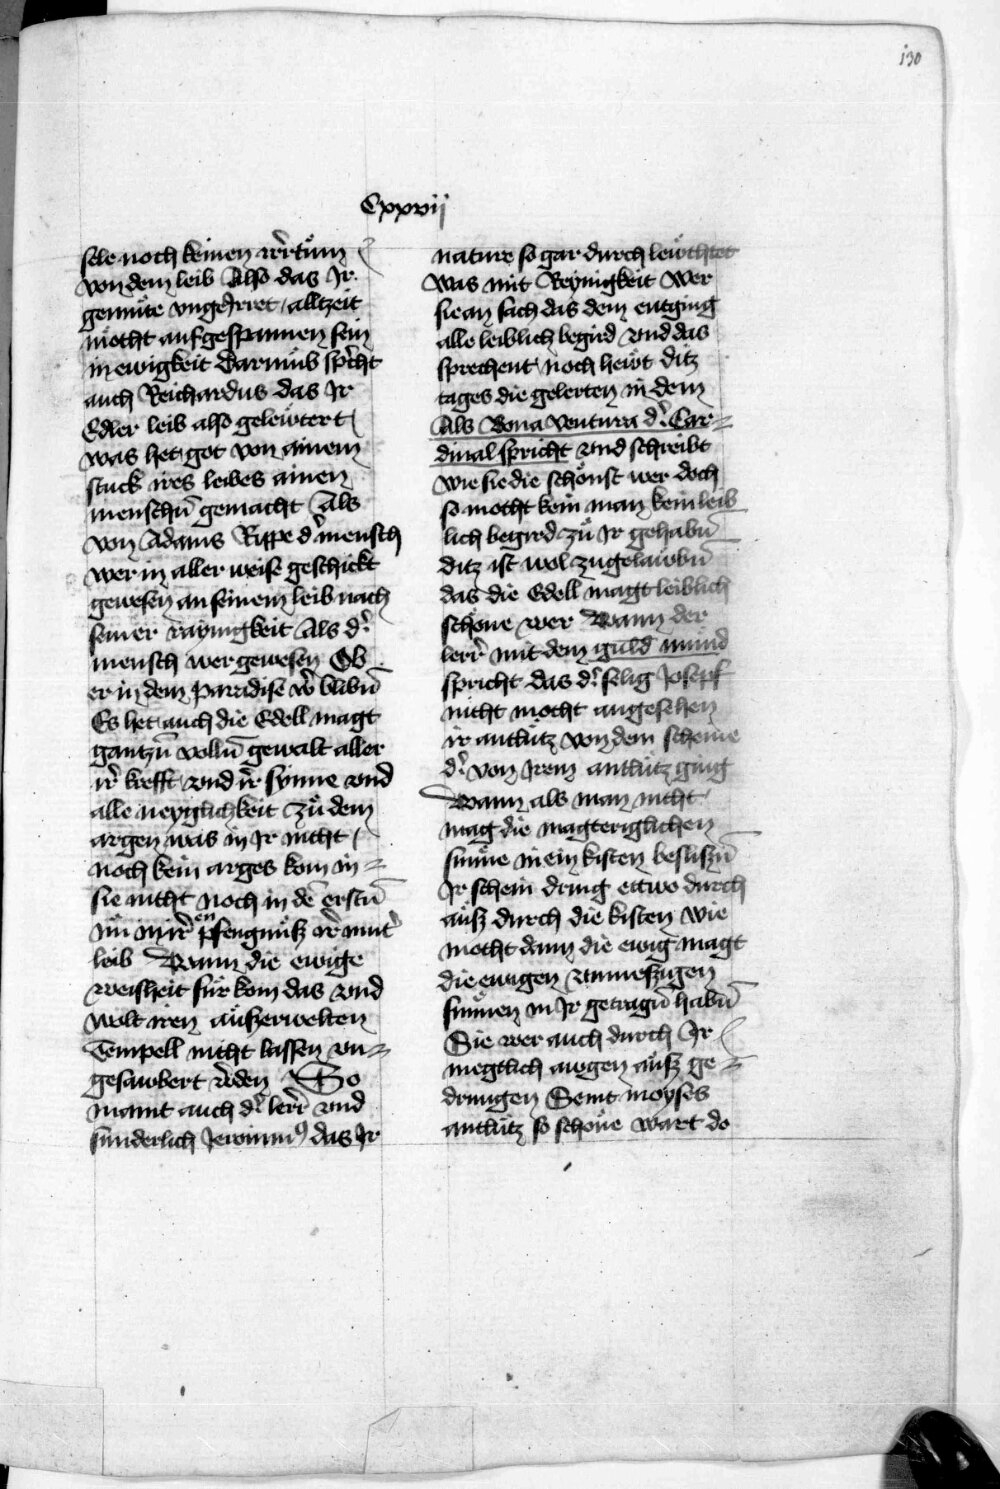 130
Cxxvij
sele noch keinen irr̄tům
von dem leib Also das Jr
gemůte vngeJrret alltzeit
mőcht aufgespannen sein
in ewigkeit Darumb sp̄cht
auch Reichardus das Jr
Edler leib also gelewtert
was het got von ainem
stuck ires leibes ainen
menschn̄ gemacht Als
von Adams Rippe d' mensch
wer in aller weise geschickt
gewesen an seinem leib nach
seiner raynigkeit Als d'
mensch wer gewesen Ob
er in dem paradise w' blibn̄
Es het auch die Edell magt
gantzn̄ volln̄ gewalt aller
ir' krefft vnd ir' synne vnd
alle neyglichkeit zů dem
argen was in Jr nicht
noch kein arges kom in=
sie nicht noch in dē erstn̄
nů in ir' enpfengnůß ir' mut'
leib Wann die ewige
weisheit für kom das vnd
wolt iren außerwelten
Tempell nicht lassen vn=
gesawbert w'den So
maint auch d' lerr' vnd
sunderlich Jeronim9 das Jr
nature so gar durch lewchtet
was mit Reynigkeit Wer
sie an sach das dem entging
alle leiblich begird vnd das
sprechent noch hewt ditz
tages die gelerten in dem
Als Bona ventura d' Car=
dinal spricht vnd schreibt
wie sie die schőnst wer doch
so mocht kein man kein leib
lich begird zů Jr gehabn̄
ditz ist wol zugelawbn̄
das die Edell magt leiblich
schőne wer Wann der
lerr' mit dem guld mund
spricht das d' selig Josepf
nicht mocht angesehen
ir antlutz von dem scheine
d' von Jrem antlutz ging
Wann als man nicht
mag die magteriglichen
sunne in ein kisten besliszn̄
Jr schein dring ettwo durch
auß durch die kisten Wie
mocht dann die ewig magt
die ewigen vnmeszigen
sunnen in Jr getragn̄ habn̄
Sie wer auch durch Jr
megtlich awgen auß ge=
drungen Seint moyses
antlutz so schőne wart do